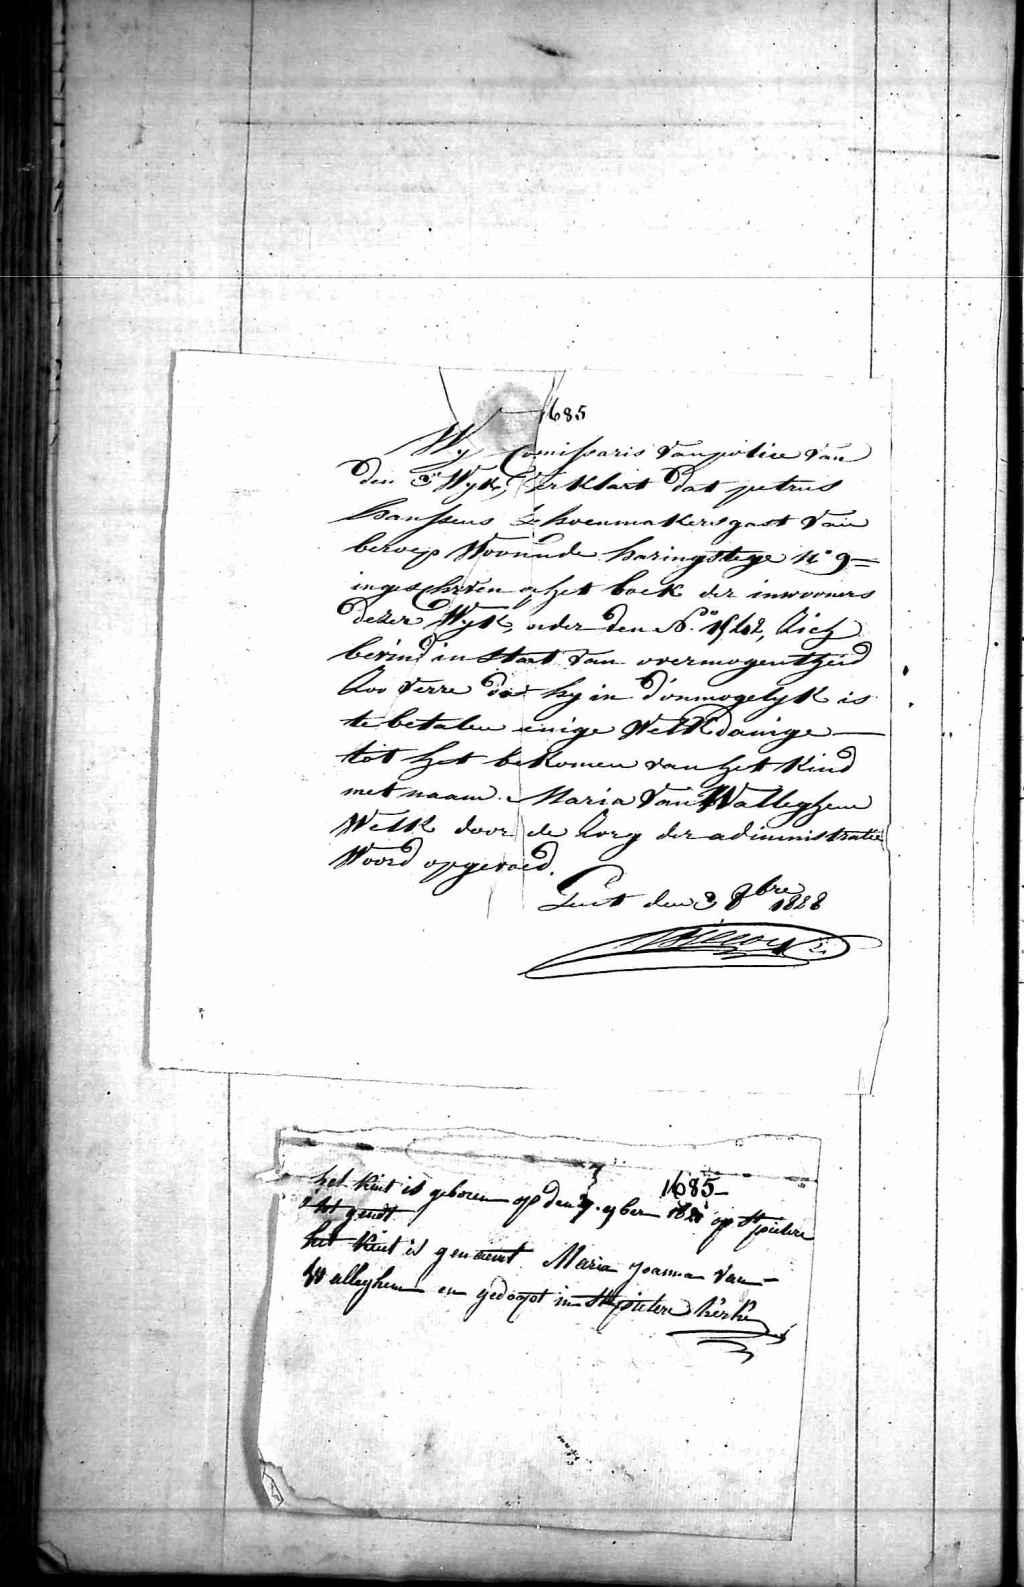 1685
Wy Comissaris van police van
den 3e Wyk, verklart dat petrus
hanssens Schoenmakersgast van
beroep Woonende haringstege n° 9
ingeschreven op het boek der inwooners
dezer Wyk, onder den No. zich
bevind in staat van onvermogentheid
zoo verre dat hy in d'onmogelyk is
te betalen eenige Welkdanige
tot het bekomen van het kind
met naam Maria Van Walleghem
Welk door de zorg der administratie
Woord opgevoed.
Gent den 3 8bre 1828
1685
het kint is geboren op den 7. 9ber op St pieters
tot gendt
het kint is genaemt Maria joanna Van
Walleghem en gedoopt in St pieters kerke